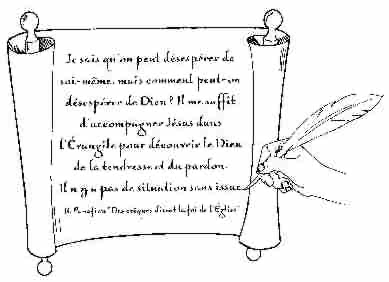 Je sais qu'on peut désespérer de
soi-même, mais comment peut-on
désespérer de Dieu? Il me suffit
d'accompagner Jésus dans
l'Évangile pour découvrir le Dieu
de la tendresse et du pardon.
Il n'y a pas de situation sans issue.
"Des évêques disent la foi de l'Église"